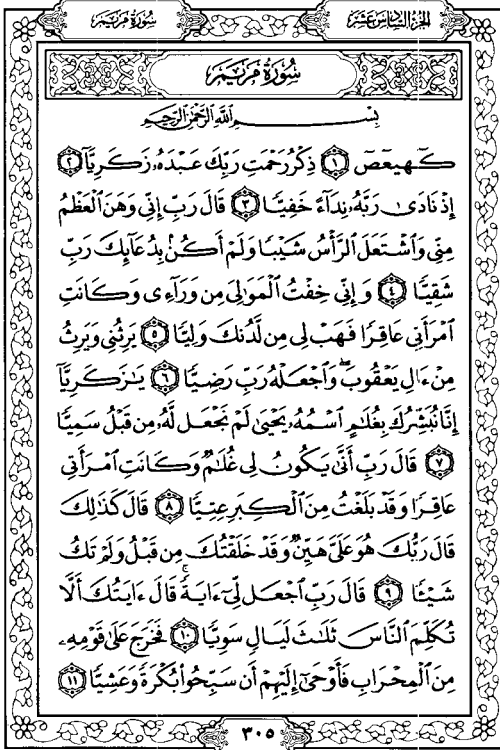 الجزء السادس عشر
سُورَةُ مَرْيَم
سُورَةُ مَرْيَم
بِسْمِ ٱللَّهِ ٱلرَّحْمَٰنِ ٱلرَّحِيمِ
كٓهيعٓصٓ ١ ذِكْرُ رَحْمَتِ رَبِّكَ عَبْدَهُۥ زَكَرِيَّآ ٢
إِذْ نَادَىٰ رَبَّهُۥ نِدَآءً خَفِيًّا ٣ قَالَ رَبِّ إِنِّى وَهَنَ ٱلْعَظْمُ
مِنِّى وَٱشْتَعَلَ ٱلرَّأْسُ شَيْبًا وَلَمْ أَكُنۢ بِدُعَآئِكَ رَبِّ
شَقِيًّا ٤ وَإِنِّى خِفْتُ ٱلْمَوَٰلِىَ مِن وَرَآءِى وَكَانَتِ
ٱمْرَأَتِى عَاقِرًا فَهَبْ لِى مِن لَّدُنكَ وَلِيًّا ٥ يَرِثُنِى وَيَرِثُ
مِنْ ءَالِ يَعْقُوبَ ۖ وَٱجْعَلْهُ رَبِّ رَضِيًّا ٦ يَٰزَكَرِيَّآ
إِنَّا نُبَشِّرُكَ بِغُلَٰمٍ ٱسْمُهُۥ يَحْيَىٰ لَمْ نَجْعَل لَّهُۥ مِن قَبْلُ سَمِيًّا
٧ قَالَ رَبِّ أَنَّىٰ يَكُونُ لِى غُلَٰمٌ وَكَانَتِ ٱمْرَأَتِى
عَاقِرًا وَقَدْ بَلَغْتُ مِنَ ٱلْكِبَرِ عِتِيًّا ٨ قَالَ كَذَٰلِكَ
قَالَ رَبُّكَ هُوَ عَلَىَّ هَيِّنٌ وَقَدْ خَلَقْتُكَ مِن قَبْلُ وَلَمْ تَكُ
شَيْـًٔا ٩ قَالَ رَبِّ ٱجْعَل لِّىٓ ءَايَةً ۚ قَالَ ءَايَتُكَ أَلَّا
تُكَلِّمَ ٱلنَّاسَ ثَلَٰثَ لَيَالٍ سَوِيًّا ١٠ فَخَرَجَ عَلَىٰ قَوْمِهِۦ
مِنَ ٱلْمِحْرَابِ فَأَوْحَىٰٓ إِلَيْهِمْ أَن سَبِّحُوا۟ بُكْرَةً وَعَشِيًّا ١١
٣٠٥